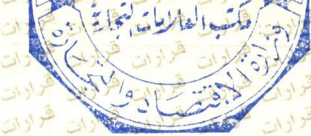 مكتب العلامات التجارية
وزارة الاقتصاد والتجارة
قرارات قرارات قرارات
قرارات قرارات قرارات